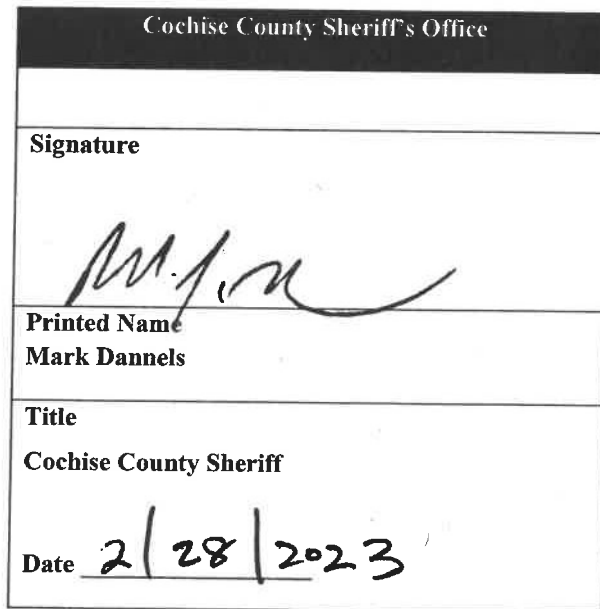 Cochise County Sheriff's Office
Signature
Printed Name
Mark Dannels
Title
Cochise County Sheriff
Date 2/28/2023